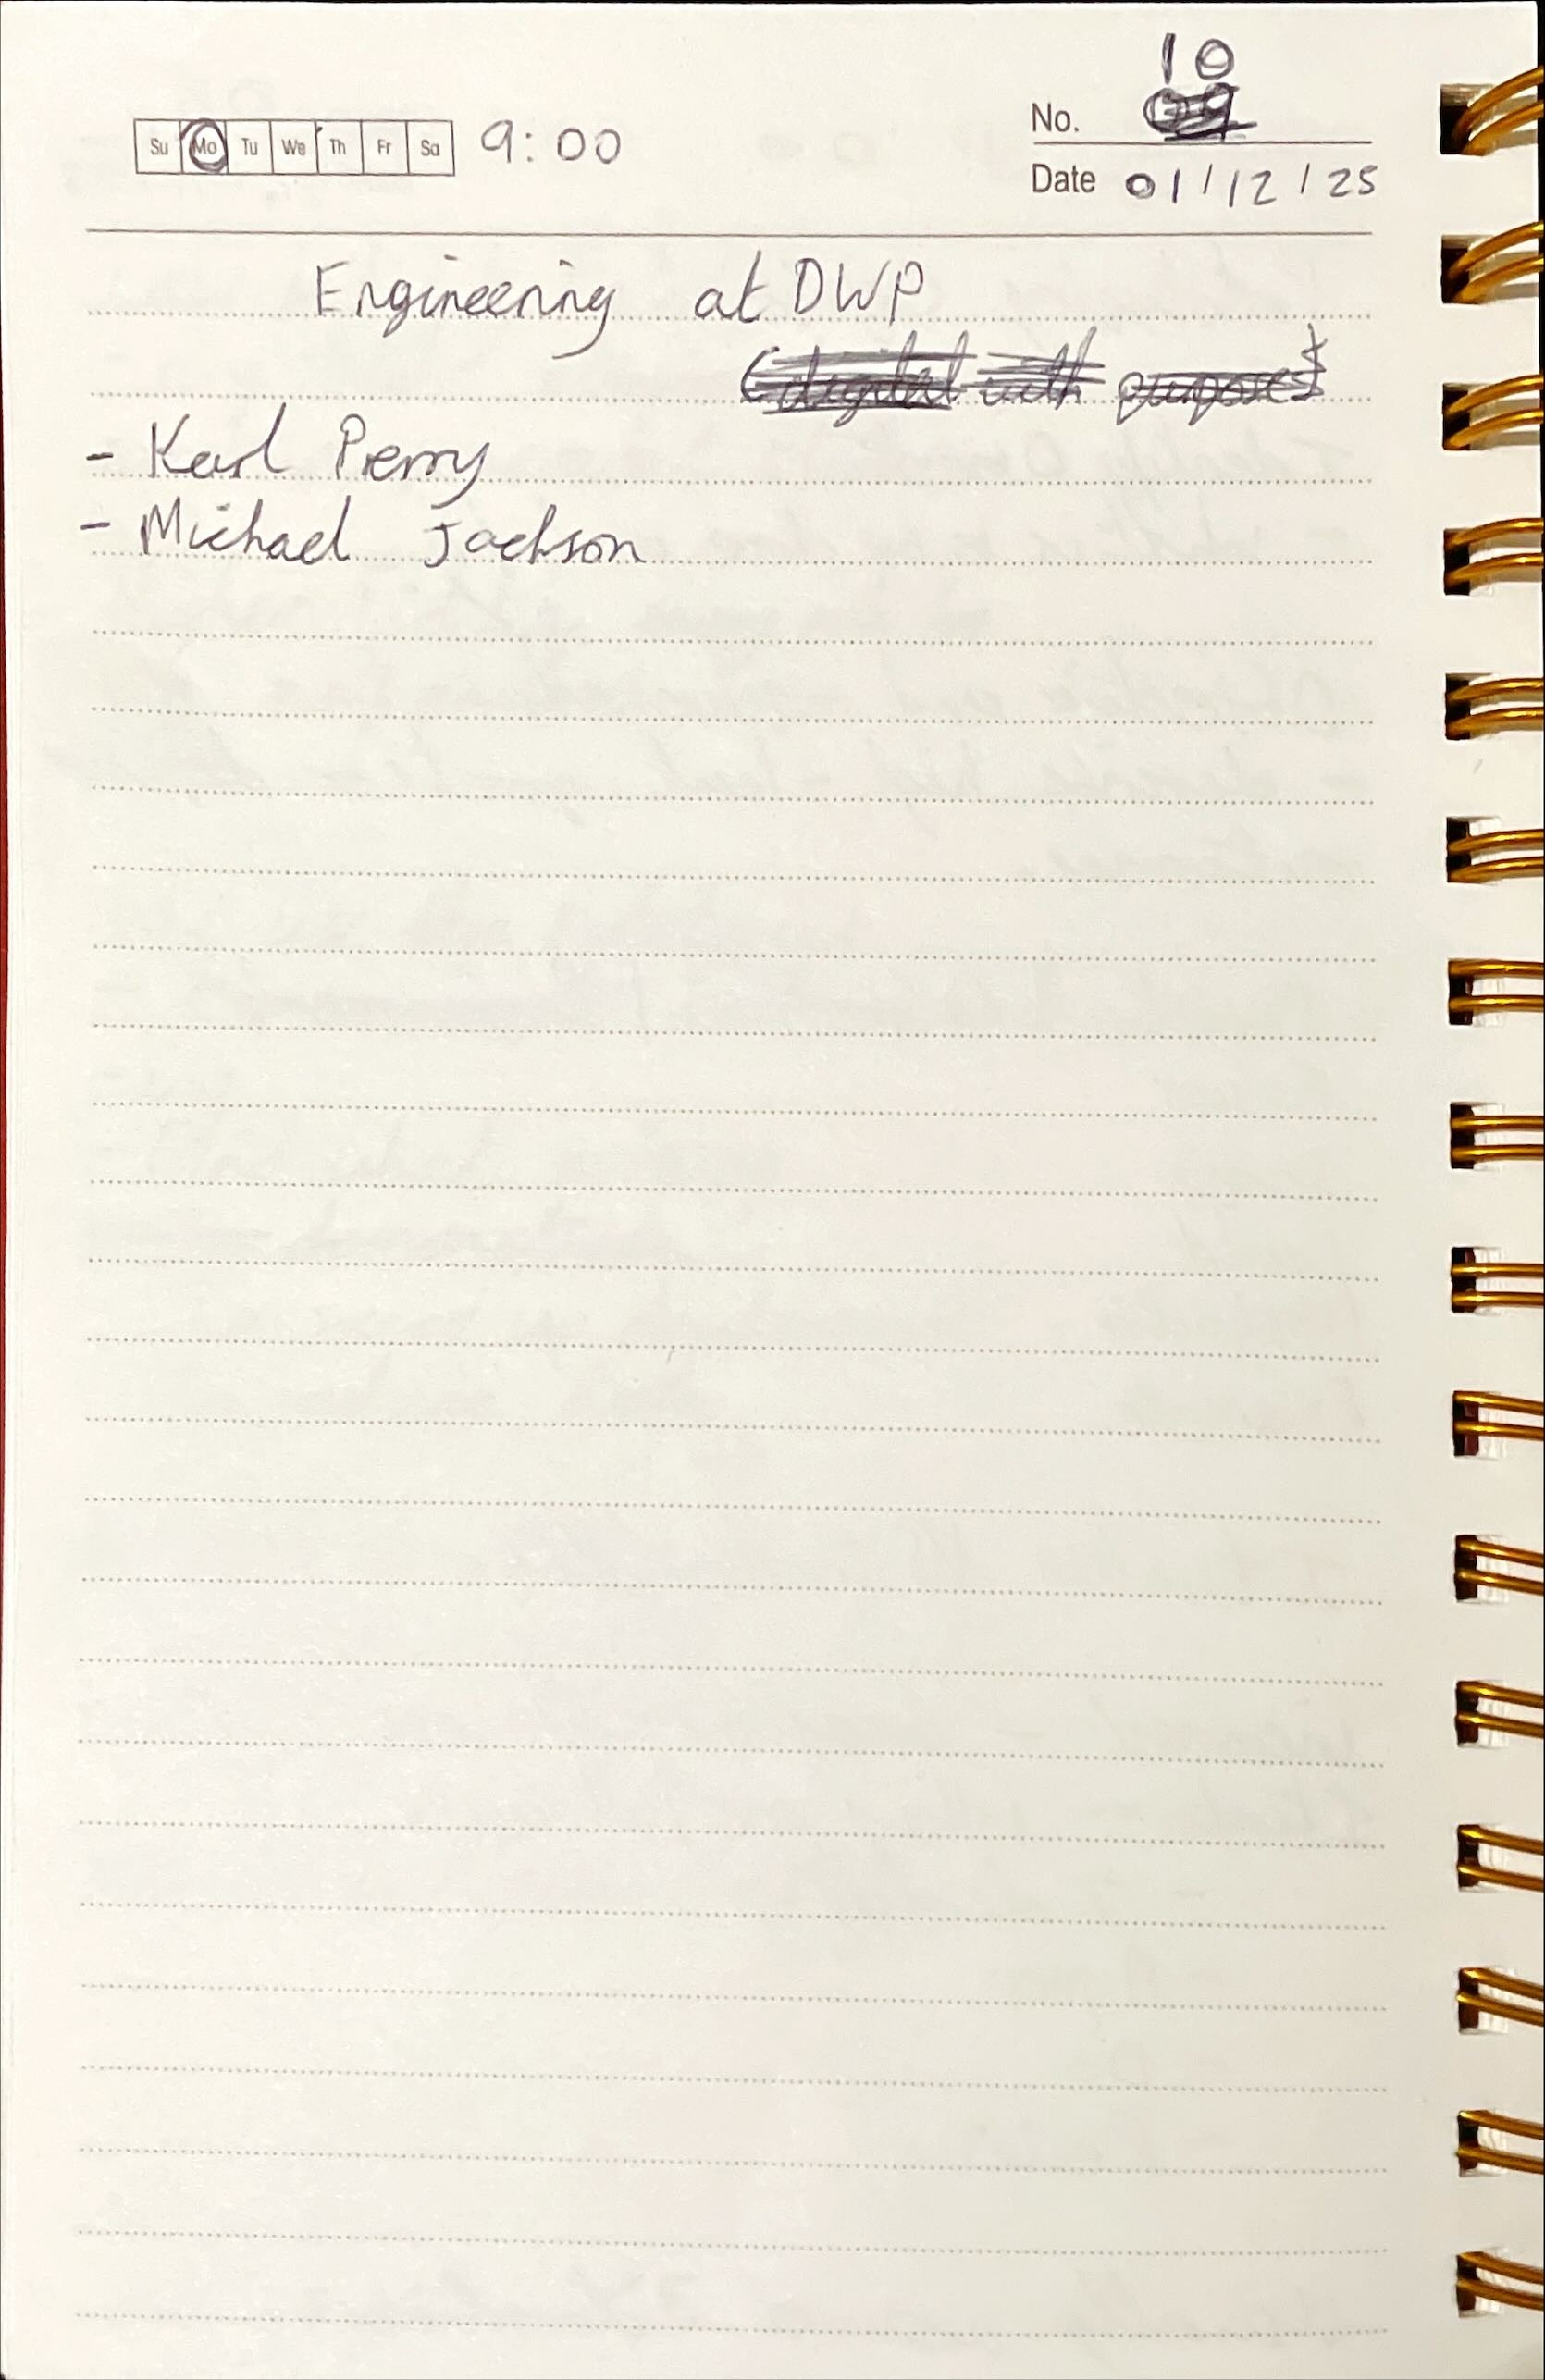 10
Su Mo Tu We Th Fr Sa 9:00 No. 09
Date 01/12/25
Engineering at DWP
(digital with purpose)
- Karl Perry
- Michael Jackson